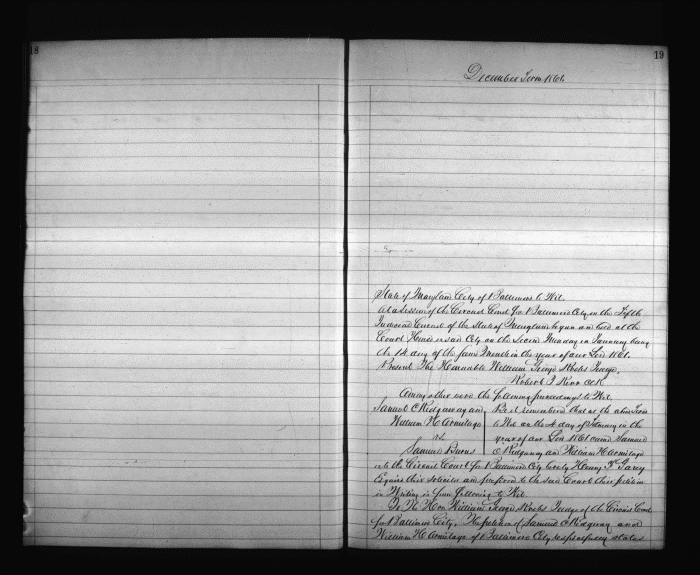 18
19
December Term 1861.
State of Maryland City of Baltimore to Wit.
At a Session of the Circuit Court for Baltimore City in the Fifth
Judicial Circuit of the State of Maryland begun and held at the
Court House in said City on the Second Monday in January being
the 14 day of the same Month in the year of our Lord 1861.
Present The Honorable William George Krebs Judge,
Robert J Kerr Clk
Among other were the following proceedings to Wit.
Samuel C Ridgaway and
William H Armitage
vs
Samuel Burns
Be it remembered that at the
to Wit on the 4 day of
year of our Lord 1861 came Samuel
C Ridgaway and William H Armitage
into the Circuit Court for Baltimore City by Henry F Garey
Esquire their solicitor and preferred to the said Court their petition
in Writing in form following to Wit.
To The Hon William George Krebs Judge of the Circuit Court
for Baltimore City, The petition of Samuel C Ridgaway and
William H Armitage of Baltimore City respectfully states